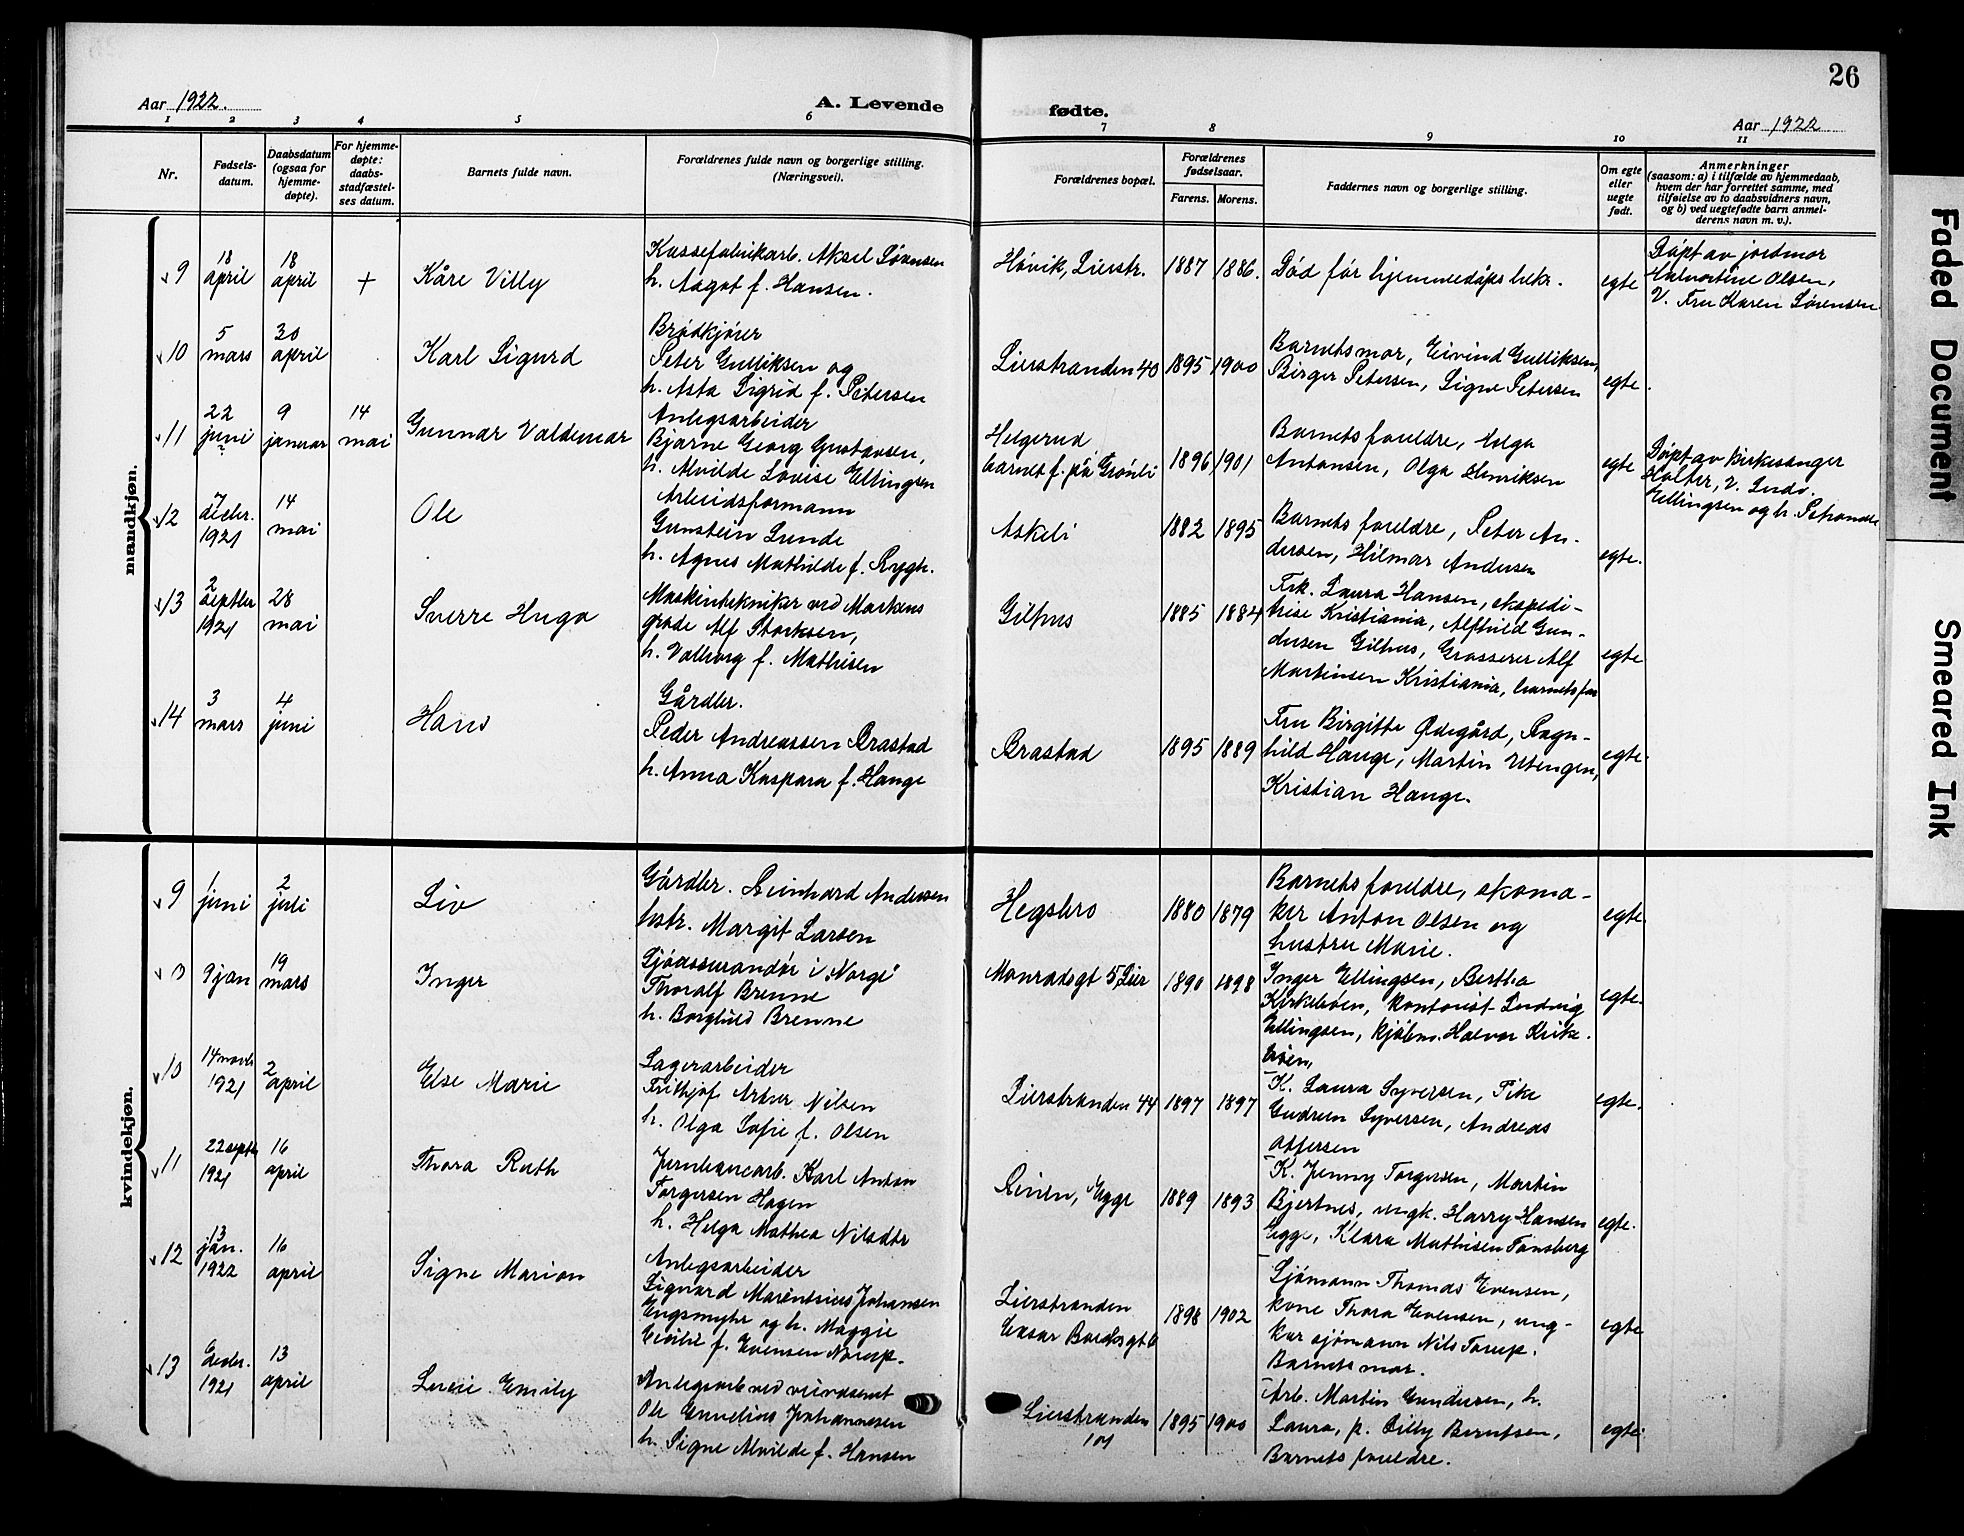 26
Aar 1922.
A. Levende
fødte.
Aar 1922
1 2 3 4 5 6 7 8 9 10 11
Nr.
Fødsels-
datum.
Daabsdatum
(ogsaa for
hjemme-
døpte).
For hjemme-
døpte:
daabs-
stadfæstel-
ses datum.
Barnets fulde navn.
Forældrenes fulde navn og borgerlige stilling.
(Næringsvei).
Forældrenes bopæl.
Forældrenes
fødselsaar.
Farens. Morens.
Faddernes navn og borgerlige stilling.
Om egte
eller
uegte
født.
Anmerkninger
(saasom: a) i tilfælde av hjemmedaab,
hvem der har forrettet samme, med
tilføielse av to daabsvidners navn,
og b) ved uegtefødte barn anmel-
derens navn m. v.).
mandkjøn.
9
18
april
18
april
+
Kåre Villy
Kassefabrikarb. Aksel Sørensen
h. Aagot f. Hansen.
Høvik, Lierstr.
1887 1886.
Død før hjemmedåps bekr.
egte
Døpt av jordmor
Halvortine Olsen,
V. Fru Karen Sørensen
10
5
mars
30
april
Karl Sigurd
Brødkjører
Peter Gulliksen og
h. Asta Sigrid f. Petersen
Lierstranden 40
1895 1900
Barnets mor, Eivind Gulliksen,
Birger Petersen, Signe Petersen
egte.
11
22
juni
9
januar
14
mai
Gunnar Valdemar
Anlegsarbeider
Bjarne Georg Gustavsen,
h. Alvilde Lovise Ellingsen
Helgerud
barnet f. på Grønli
1896 1901
Barnets foreldre, Helga
Antonsen, Olga Henriksen
egte
Døpt av kirkesanger
Holter, V. Ludv.
Ellingsen og h. Petronelle
12
7
decbr.
1921
14
mai
Ole
Arbeidsformann
Gunstein Gunde
h. Agnes Mathilde f. Rygh.
Askeli
1882 1895
Barnets foreldre, Peter An-
dersen, Hilmar Andersen
egte.
13
2
septbr
1921
28
mai
Sverre Hugo
Maskintekniker ved Markens
grøde Alf Storksen,
h. Valborg f. Mathisen
Gilhus
1885 1884
Frk. Laura Hansen, ekspedi-
trise Kristiania, Alfhild Gun-
dersen Gilhus, Grosserer Alf
Martinsen Kristiania, barnets far
egte
14
3
mars
4
juni
Hans
Gårdbr.
Peder Andreassen Brastad
h. Anna Kaspara f. Hauge
Brastad
1895 1889
Fru Birgitte Ødegård, Ragn-
hild Hauge, Martin Utengen,
Kristian Hauge.
egte.
kvindekjøn.
9
1
juni
2
juli
Liv
Gårdbr. Reinhard Andersen
hstr. Margit Larsen
Hegsbro
1880 1879
Barnets foreldre, skoma-
ker Anton Olsen og
hustru Marie.
egte.
9 jan
19
mars
Inger
Sjøassurandør i "Norge"
Thoralf Brenne
h. Borghild Brenne
Monradsgt 5, Lier
1890 1898
Inger Ellingsen, Bertha
Kirkebøen, kontorist Ludvig
Ellingsen, kjøbm. Halvor Kirke-
bøen,
egte.
10
14 novbr
1921
2
april
Else Marie
Lagerarbeider
Frithjof Artur Nilsen
h. Olga Sofie f. Olsen
Lierstranden 44
1897 1897
K. Laura Syversen, Pike
Gudrun Syversen, Andreas
Offersen
egte.
11
22 septbr
1921
16
april
Thora Ruth
Jernbanearb. Karl Anton
Torgersen Hagen
h. Helga Mathea Nilsdtr
Linen, Egge
1889 1893
K. Jenny Torgersen, Martin
Bjertnes, ungk. Harry Hansen
Egge, Klara Mathisen Tønsberg
egte.
12
13
jan.
1922
16
april
Signe Marion
Anlegsarbeider
Sigvard Marentsius Johansen
Engsmyhr og h. Maggie
Cecilie f. Evensen Norup.
Lierstranden
1898 1902
Sjømann Thomas Evensen,
kone Thora Evensen, ung-
kar sjømann Nils Torup.
Barnets mor.
egte
13
decbr.
1921
13
april
Lucie Emily
Anlegsarb ved veivæsenet
Ole Cornelius Johannesen
h. Signe Alvilde f. Hansen
Lierstranden
101
1895 1900
Arb. Martin Gundersen, h.
Laura, p. Lilly Berntsen,
Barnets foreldre.
egte.
Faded Document
Smeared Ink